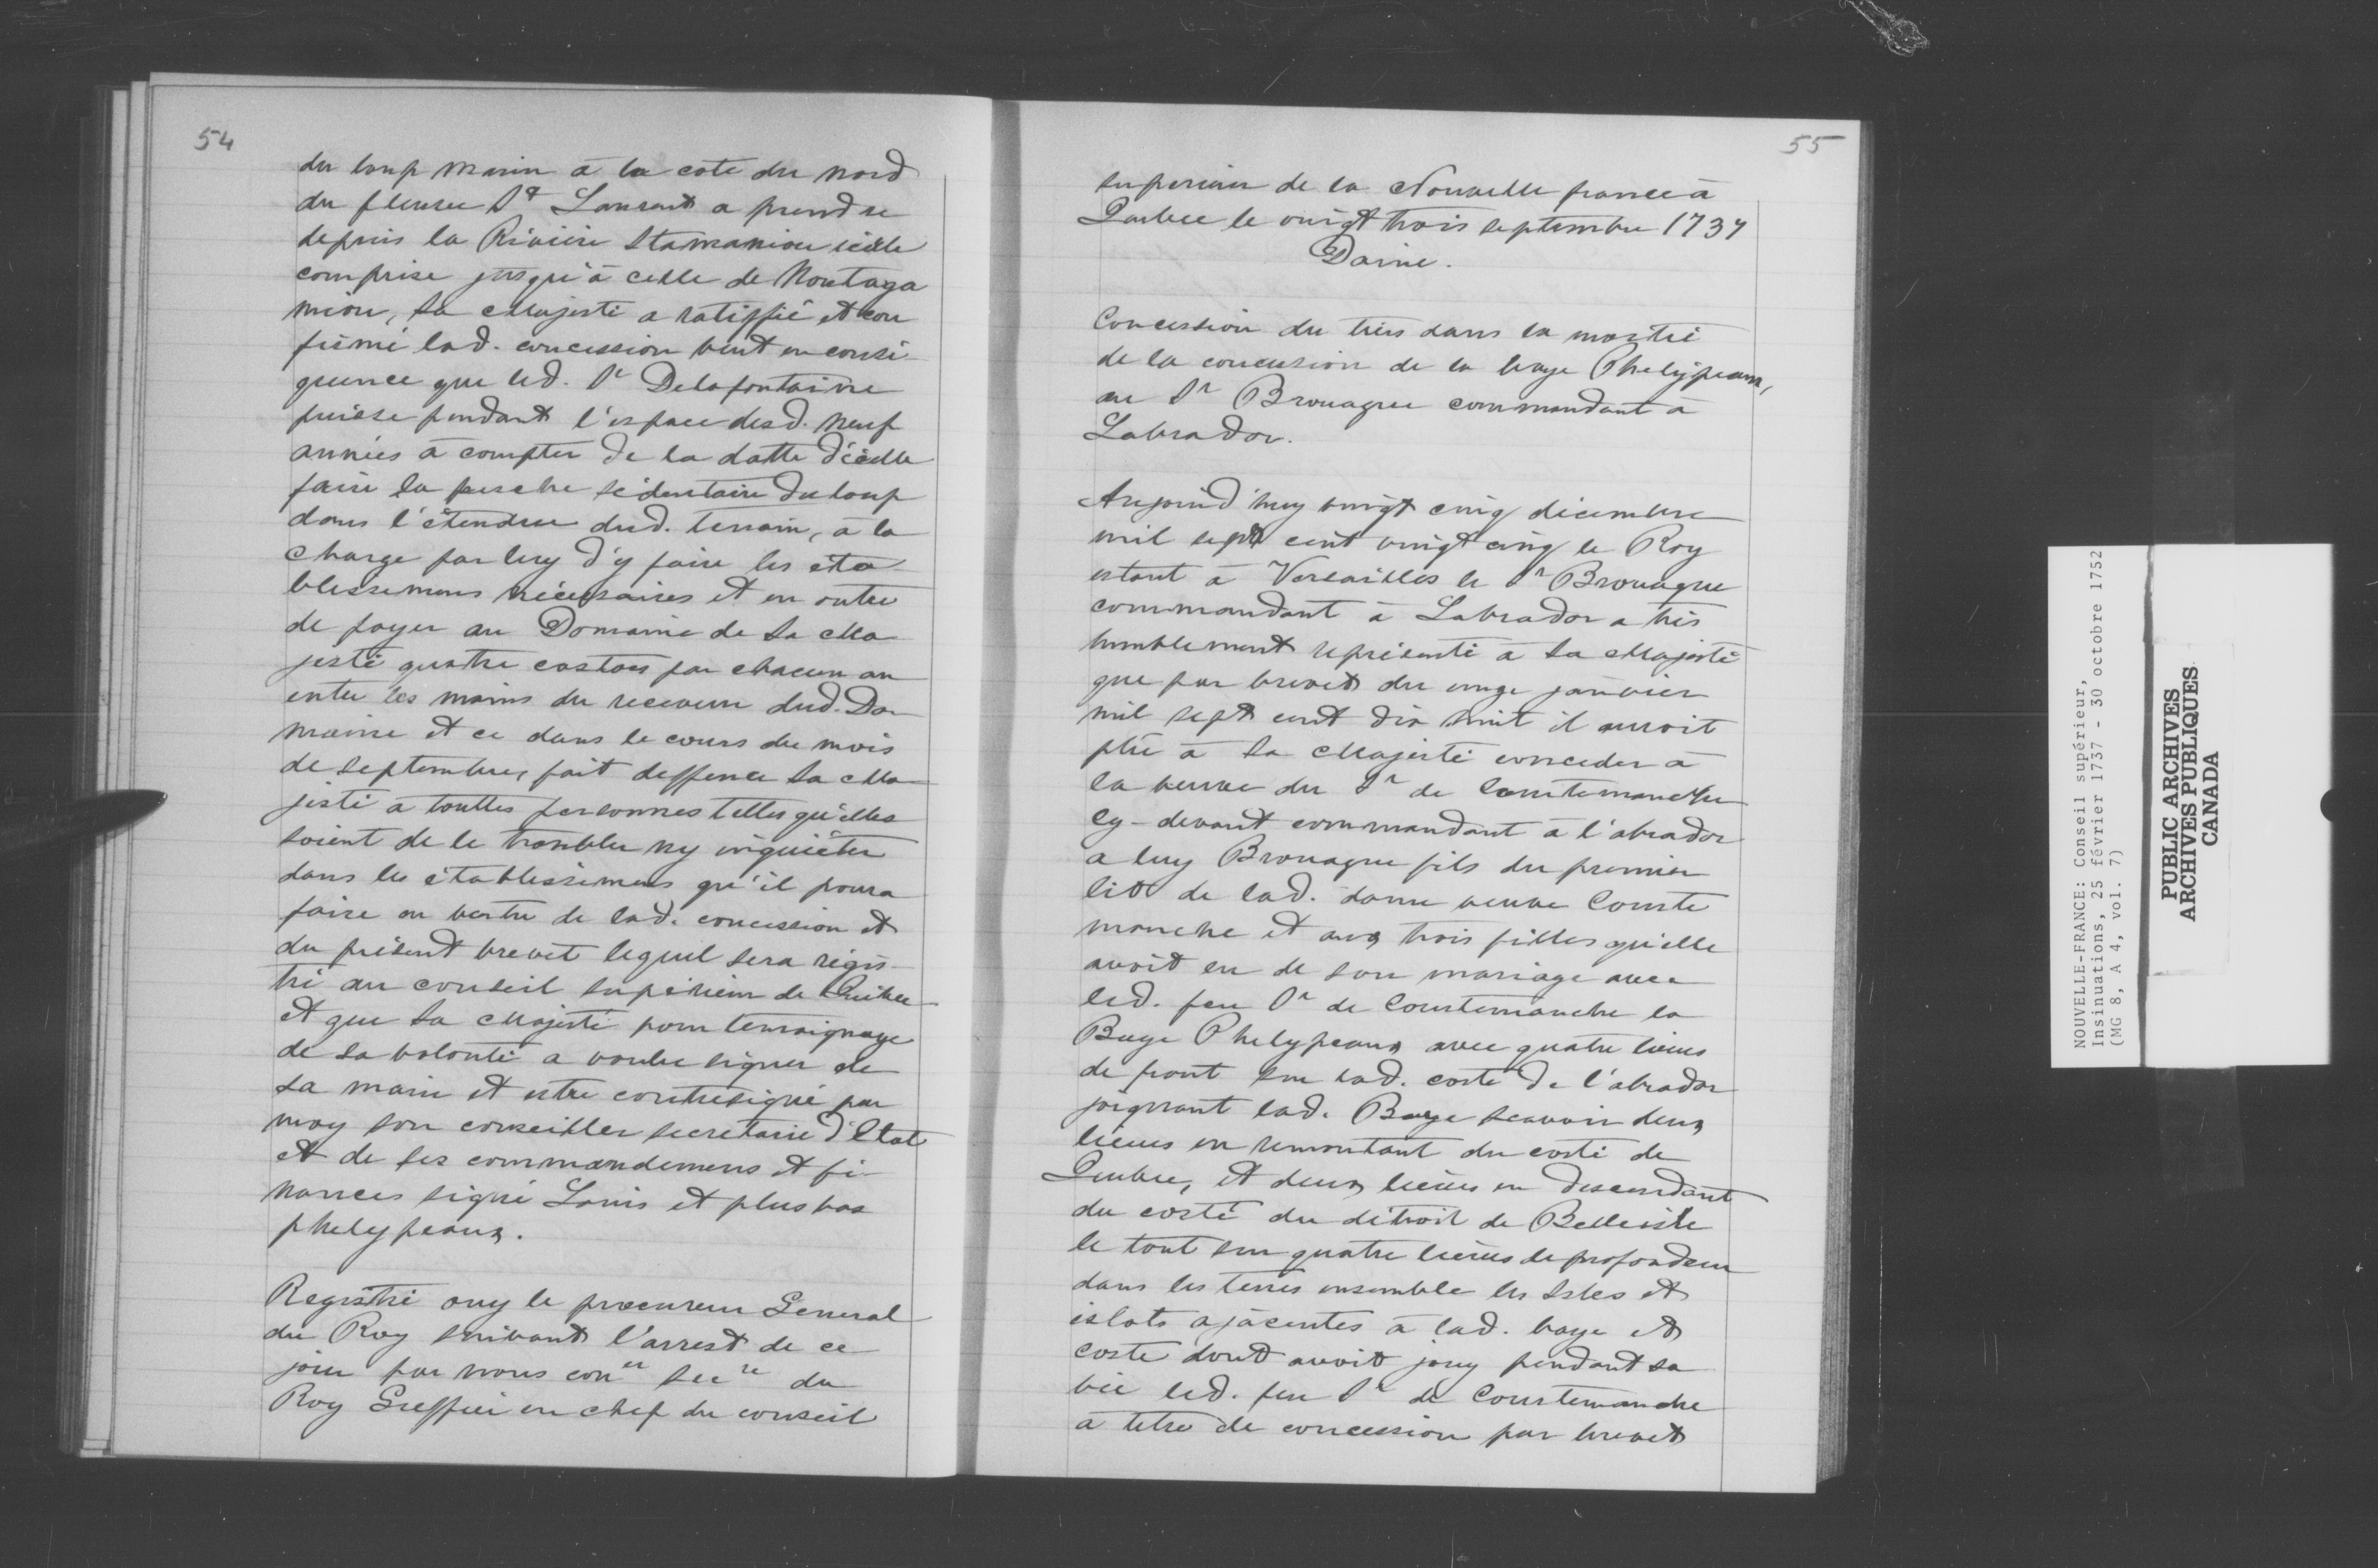 54
du loup marin à la cote du nord
du fleuve St Laurent a prendre
depuis la Rivière Itamamiou icelle
comprise jusqu'à celle de Noutaga
miou, Sa Majesté a ratiffié et con
firmé lad. concession veut en consé
quence que led. Sr Delafontaine
puisse pendant l'espace desd. neuf
années à compter de la datte d'icelle
faire la pesche sédentaire du loup
dans l'étendue dud. terrain, à la
charge par luy d'y faire les éta
blissemens nécessaires et en outre
de payer au Domaine de Sa Ma
jesté quatre castors par chacun an
entre les mains du receveur dud. Do
maine et ce dans le cours du mois
de septembre, fait deffence Sa Ma
jesté à touttes personnes telles qu'elles
soient de le troubler ny inquiéter
dans les établissemens qu'il poura
faire en vertu de lad. concession et
du présent brevet lequel sera régis-
tré au conseil supérieur de Québec
et que Sa Majesté pour temoignage
de sa volonté a voulu signer de
sa main et estre contresigné par
moy son conseiller secretaire d'Etat
et de ses commandemens et fi-
nances signé Louis et plus bas
phelypeaux.
Registré ouy le procureur General
du Roy suivant l'arrest de ce
jour par nous coner secre du
Roy Greffier en chef du conseil
55
superieur de la Nouvelle france à
Quebec le vingt trois septembre 1737
Daine.
Concession du tiers dans la moitié
de la concession de la baye Phelypeaux,
au Sr Brouague commandant à
Labrador.
Aujourd'huy vingt cinq décembre
mil sept cent vingt cinq le Roy
estant à Versailles le Sr Brouague
commandant à Labrador a très
humblement représenté à Sa Majesté
que par brevet du onze janvier
mil sept cent dix huit il auroit
plu à Sa Majesté conceder à
la veuve du Sr de Courtemanche
cy-devant commandant à l'abrador
a luy Brouague fils du premier
lit de lad. dame veuve Courte
manche et aux trois filles qu'elle
avoit eu de son mariage avec
led. feu Sr de Courtemanche la
Baye Phelypeaux avec quatre lieues
de front sur lad. coste de l'abrador
joignant lad. Baye scavoir deux
lieues en remontant du costé de
Quebec, et deux lieues en descendant
du costé du détroit de Belleisle
le tout sur quatre lieues de profondeur
dans les terres ensemble les Isles et
islots ajacentes à lad. baye et
coste dont avoit jouy pendant sa
vie led. feu Sr de Courtemanche
à titre de concession par brevet
NOUVELLE-FRANCE: Conseil supérieur,
Insinuations, 25 février 1737 - 30 octobre 1752
(MG 8, A 4, vol. 7)
PUBLIC ARCHIVES
ARCHIVES PUBLIQUES
CANADA